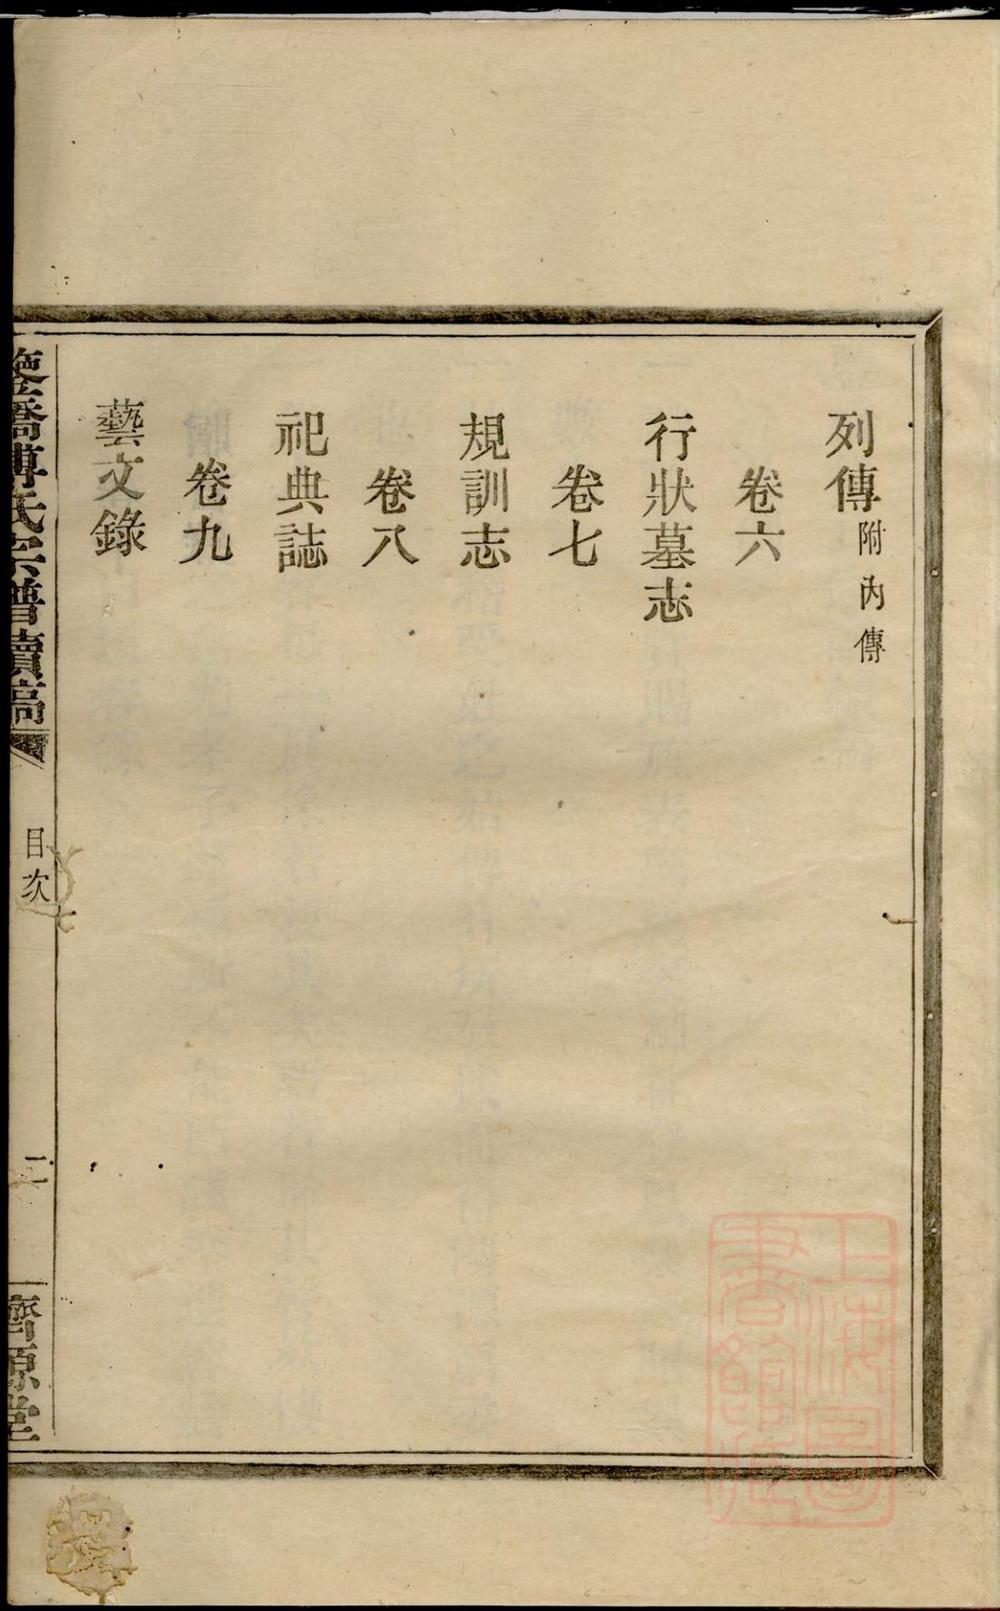 列傳附內傳
卷六
行狀墓志
卷七
規訓志
卷八
祀典誌
卷九
藝文錄
橋傅氏宗譜續稿
目次
二
齊源堂
上海圖書館藏